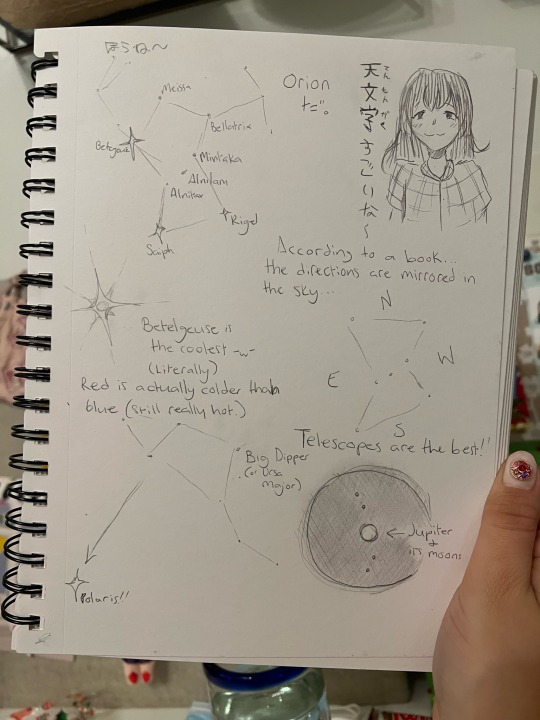 ほうね〜
Meissa
Bellatrix
Betelgeuse
Mintaka
Alnilam
Alnitak
Rigel
Saiph
Orion
だ。
天文学すごいな〜
てんもんがく
According to a book...
the directions are mirrored in
the sky...
N
E
W
S
Betelgeuse is
the coolest -w-
(Literally)
Red is actually colder than
blue (still really hot.)
Telescopes are the best!!
Big Dipper
(or Ursa
Major)
Polaris!!
← Jupiter
+
its moons